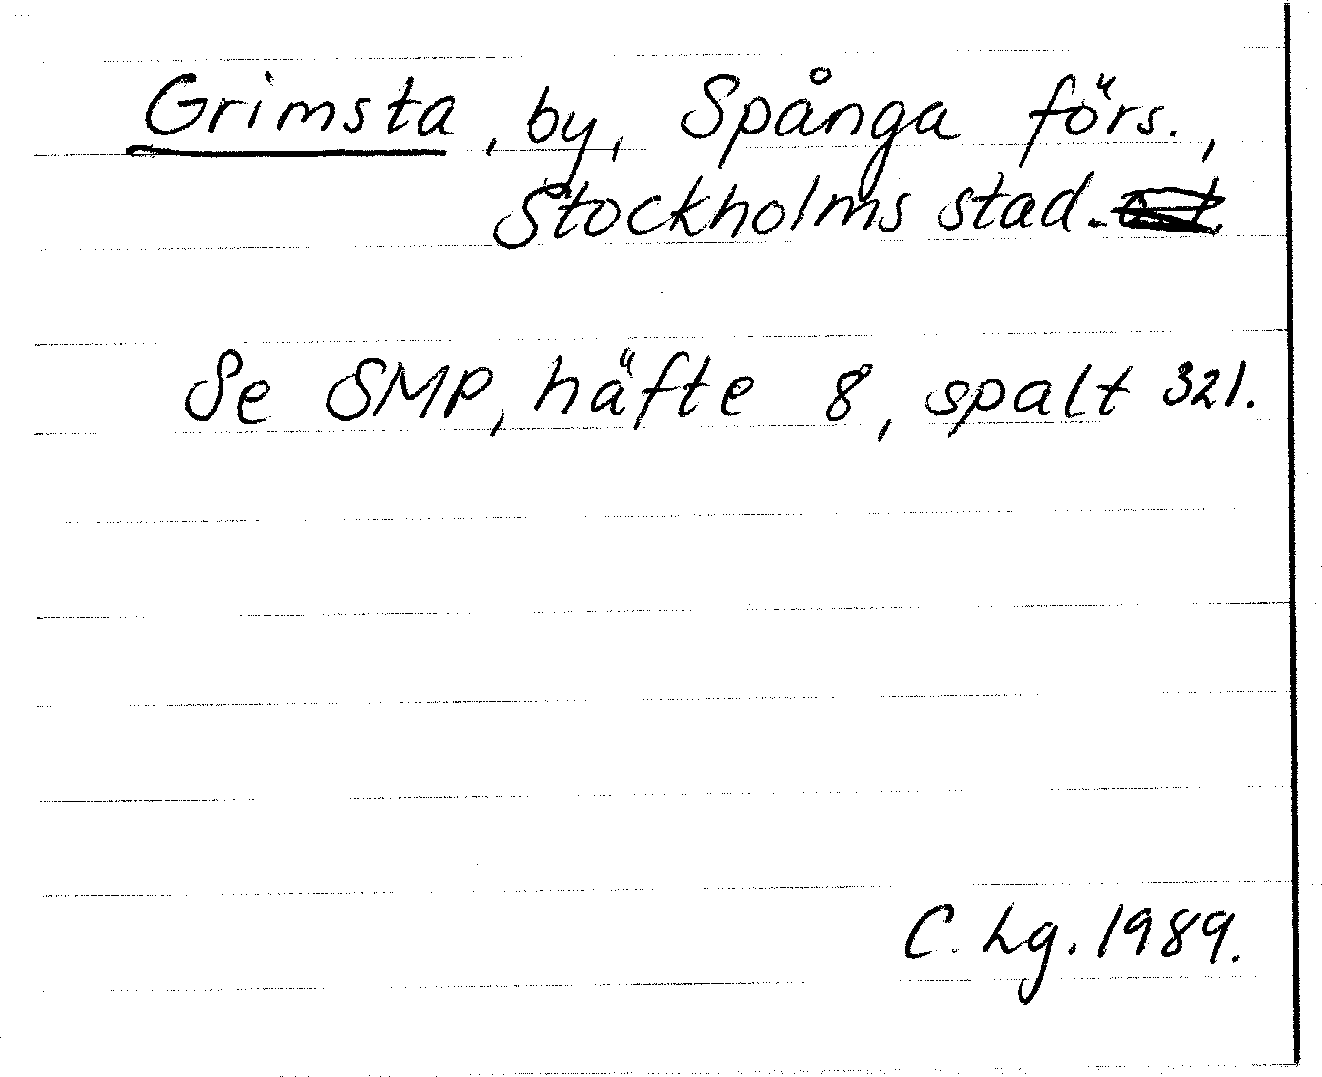 Grimsta, by, Spånga förs.,
Stockholms stad.
Se SMP, häfte 8, spalt 321.
C. Lg. 1989.